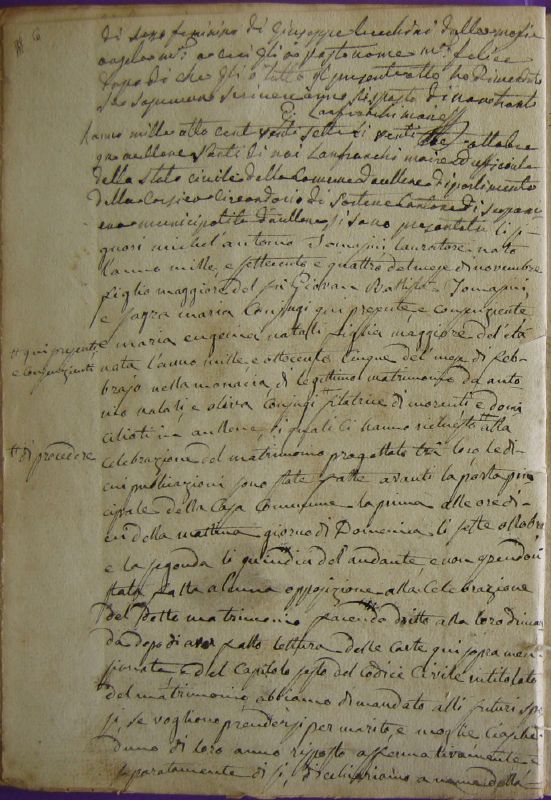 di sesso feminino di Giuseppe Lucchini della moglie
angela m.a a cui gli o posto nome m.a felice
Dopo di che gli o tutto il presente atto ha dimandato
Lanfranchi maire
L'anno mille otto cent venti sette li venti tre ottobre
avanti di noi Lanfranchi maire ed ufficiale
dello stato civile della Comune d'aullene dipartimento
della Corsica Circondario di Sartene Cantone di
municipalità d'aullene si sono presentati li si-
gnori michel'antonio Tomasini lavoratore nato
l'anno mille, e settecento e quattro del mese di novembre
figlio maggiore del fu Giovan Battista Tomasini
e maria Conjugi qui presente e consenziente
e maria eugenia natali figlia maggiore dell'età
# qui presenti
e consenzienti
nata l'anno mille, e ottocento cinque del mese di feb-
brajo nella monacia di legittimo matrimonio da anto
nio natali, e oliva Conjugi # filatrice dimoranti e domi
ciliati in aullene, li quali ci hanno richiesto alla
# di procedere
celebrazione del matrimonio progettato tra loro, le di
cui publicazioni sono state fatte avanti la porta prin
cipale della Casa Commune la prima alle ore di-
eci della mattina giorno di Domenica li sette ottobre
e la segonda li quindici dell'andante e non essendovi
stata fatta alcuna opposizione alla Celebrazione
del detto matrimonio facendo dritto alla loro diman
da dopo di aver fatto lettura delle carte qui sopra men
zionate e del Capitolo sesto del Codice Civile intitolato
del matrimonio abbiamo dimandato alli futuri spo
si, se vogliono prendersi per marito, e moglie ciasche
duno di loro anno risposto affermativamente e
separatamente di si, dichiariamo a nome della